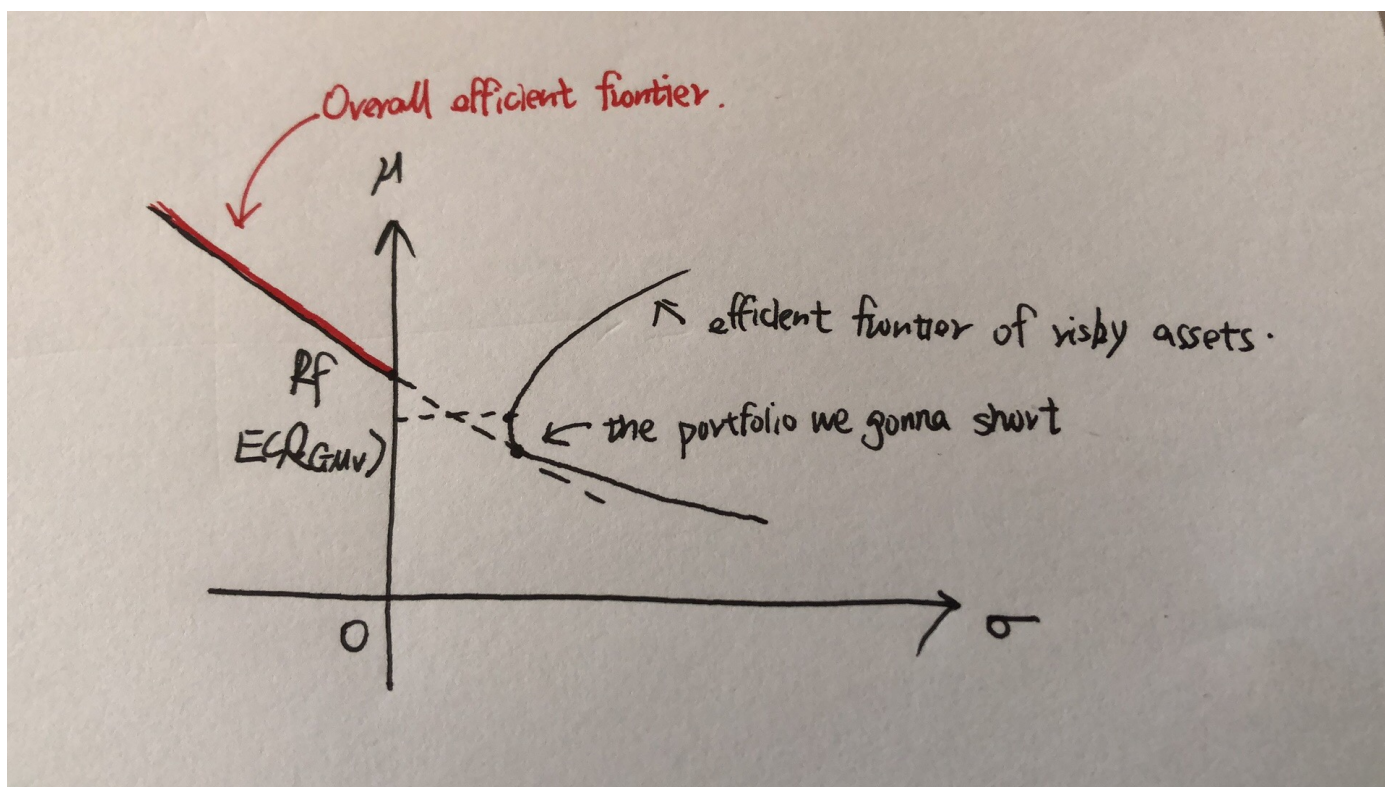 Overall efficient frontier.
μ
efficient frontier of risky assets.
Rf
the portfolio we gonna short
E(R_GMV)
0
σ